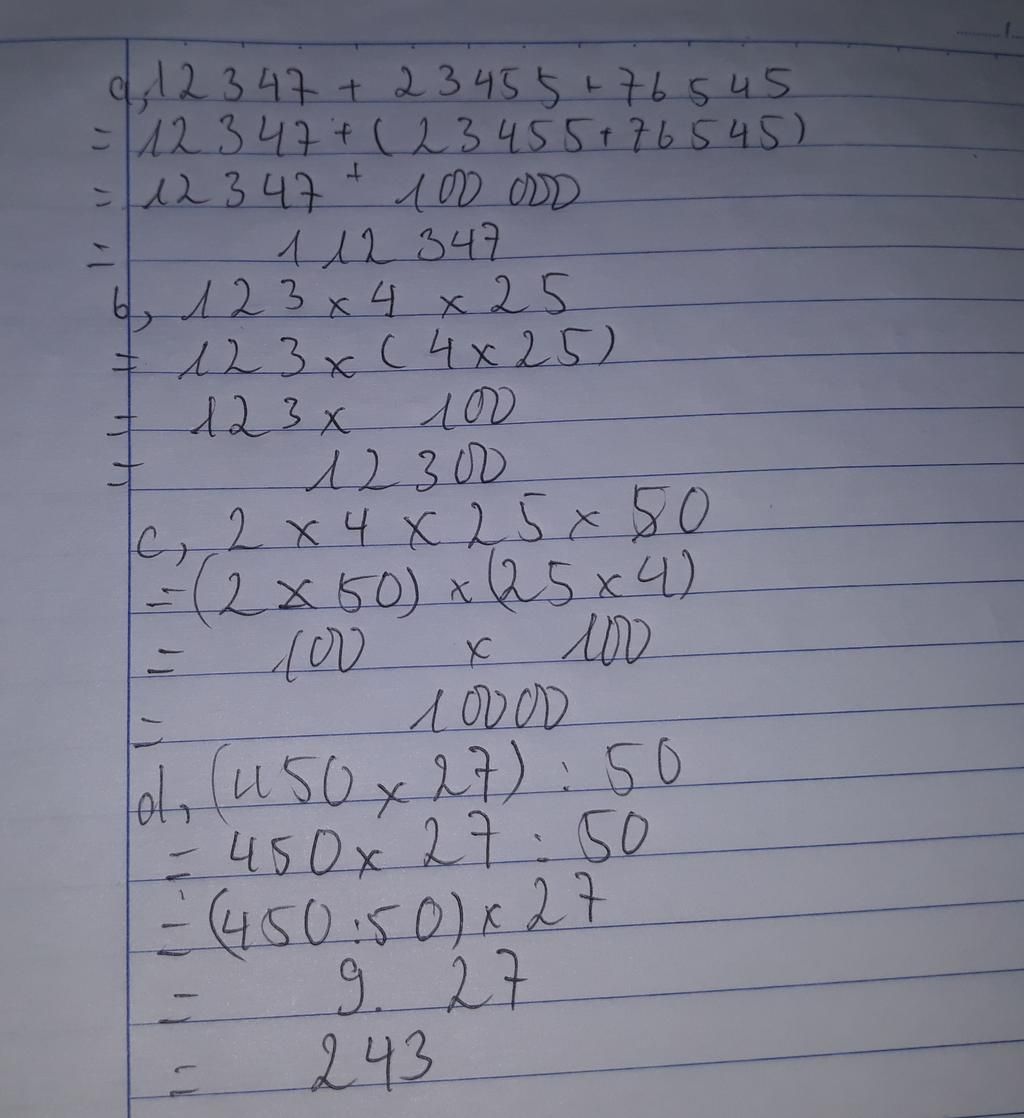 a, 12 347 + 23455 + 76 545
= 12 347 + ( 23 455 + 76 545)
= 12 347 + 100 000
= 112 347
b, 123 x 4 x 25
= 123 x ( 4 x 25)
= 123 x 100
= 12 300
c, 2 x 4 x 25 x 50
= (2 x 50) x (25 x 4)
= 100 x 100
= 10000
d, (450 x 27) : 50
= 450 x 27 : 50
= (450 : 50) x 27
= 9. 27
= 243